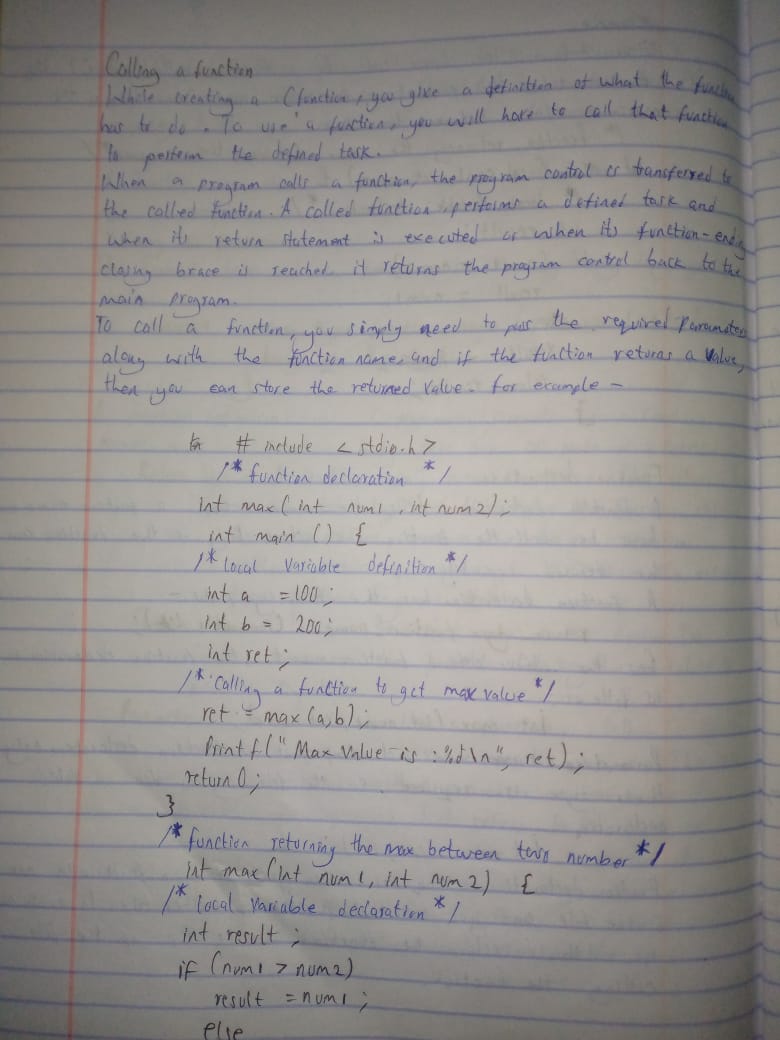 Calling a function
While creating a C function, you give a definition of what the function
has to do. To use a function, you will have to call that function
to perform the defined task.
When a program calls a function, the program control is transferred to
the called function. A called function performs a defined task and
when its return statement is executed or when its function-ending
closing brace is reached it returns the program control back to the
main program.
To call a function, you simply need to pass the required Parameters
along with the function name, and if the function returns a value,
then you can store the returned value. for example -
# include < stdio.h >
/* function declaration */
int max ( int num1 , int num2 ) ;
int main () {
/* local variable definition */
int a = 100 ;
int b = 200 ;
int ret ;
/* Calling a function to get max value */
ret = max (a,b) ;
Printf (" Max Value is : %d\n", ret) ;
return 0 ;
}
/* function returning the max between two number */
int max (int num 1, int num 2) {
/* local variable declaration */
int result ;
if (num1 > num2)
result = num1 ;
else